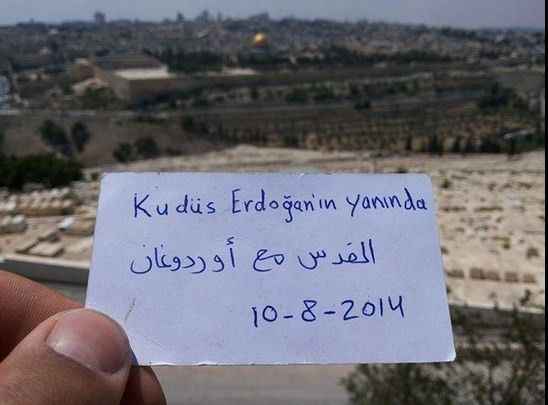 Kudüs Erdoğan'ın yanında
القدس مع أوردوغان
10-8-2014